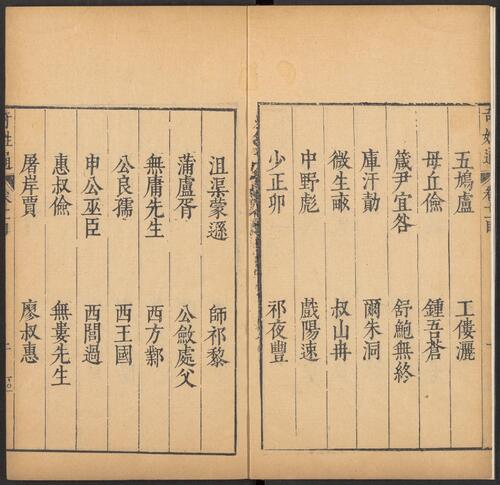 奇姓通
五鳩盧 工僂灑
母丘儉 鍾吾蒼
箴尹宜咎 舒鮑無終
庫汗勣 爾朱洞
微生畝 叔山冉
中野彪 戲陽速
少正卯 祁夜豐
沮渠蒙遜 師祁黎
蒲盧胥 公斂處父
無庸先生 西方鄴
公良孺 西王國
申公巫臣 西閭過
惠叔儉 無婁先生
屠岸賈 廖叔惠
奇姓通